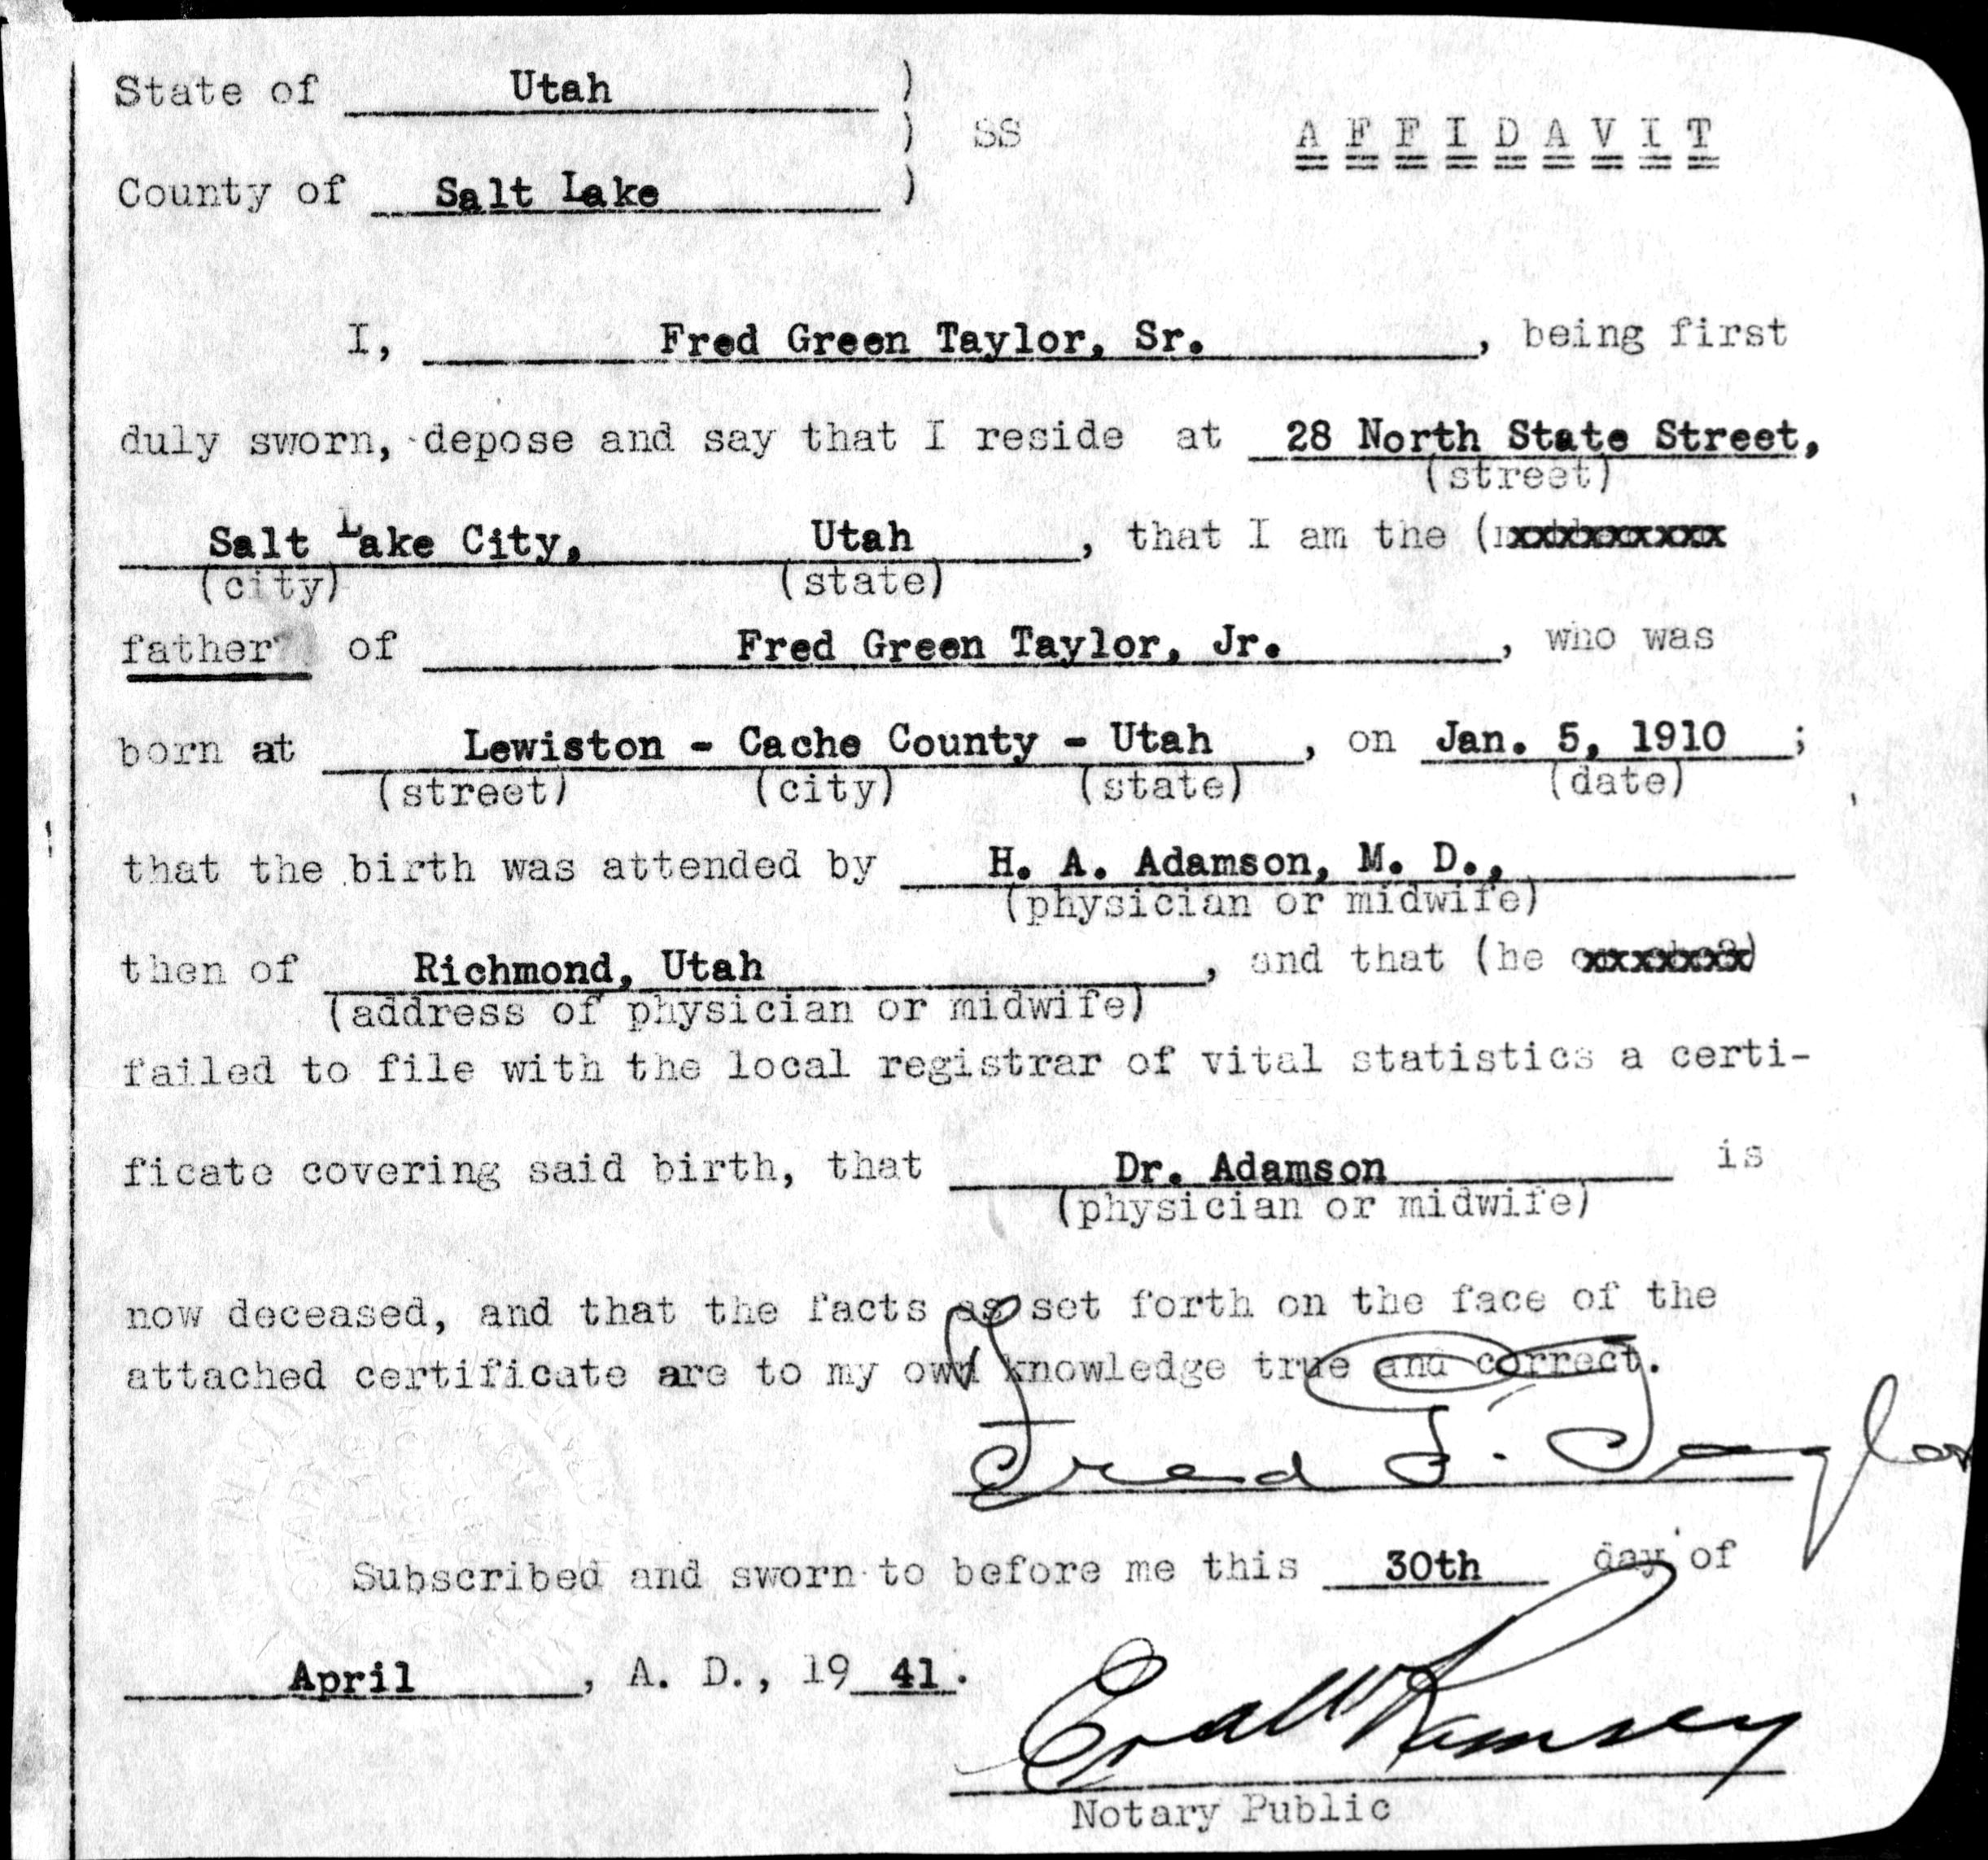 State of Utah )
) SS A F F I D A V I T
County of Salt Lake )
I, Fred Green Taylor, Sr. , being first
duly sworn, depose and say that I reside at 28 North State Street,
(street)
Salt Lake City, Utah , that I am the (
(city) (state)
father of Fred Green Taylor, Jr. , who was
born at Lewiston - Cache County - Utah , on Jan. 5, 1910 ;
(street) (city) (state) (date)
that the birth was attended by H. A. Adamson, M. D.,
(physician or midwife)
then of Richmond, Utah , and that (he xxxxxxx)
(address of physician or midwife)
failed to file with the local registrar of vital statistics a certi-
ficate covering said birth, that Dr. Adamson is
(physician or midwife)
now deceased, and that the facts as set forth on the face of the
attached certificate are to my own knowledge true and correct.
Fred G. Taylor
Subscribed and sworn to before me this 30th day of
April , A. D., 19 41.
Ramsey
Notary Public